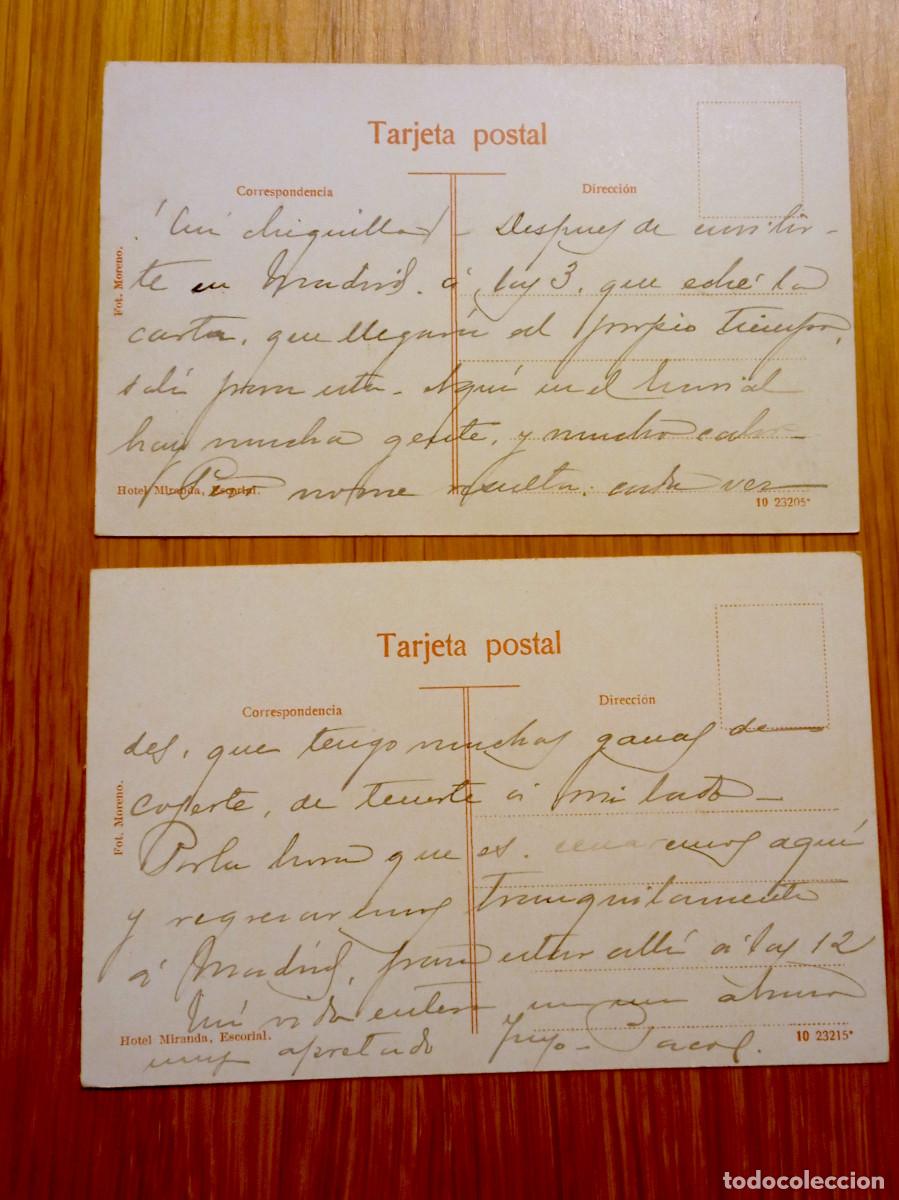 Tarjeta postal
Correspondencia
Dirección
¡Mi chiquilla! Despues de escribir-
te en Madrid. á las 3, que eché la
carta, que llegará al propio tiempo,
salí para esta. Aquí en el Escorial
hay mucha gente, y mucho calor-
Pero no me resulta. cada vez
Fot. Moreno.
Hotel Miranda, Escorial.
10 23205*
Tarjeta postal
Correspondencia
Dirección
des, que tengo muchas ganas de
cojerte, de tenerte á mi lado-
Por la hora que es. cenaremos aquí
y regresaremos tranquilamente
á Madrid, para estar allí á las 12
Mi vida entera en un abrazo
muy apretado tuyo- Pacos.
Fot. Moreno.
Hotel Miranda, Escorial.
10 23215*
todocoleccion